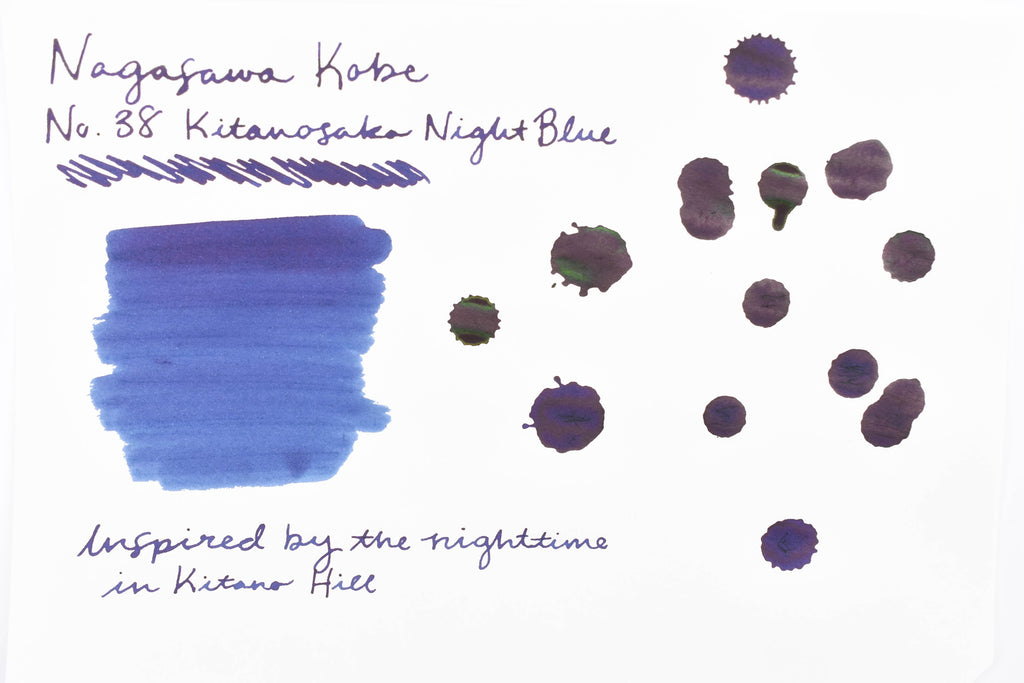 Nagasawa Kobe
No. 38 Kitanosaka Night Blue
Inspired by the nighttime
in Kitano Hill